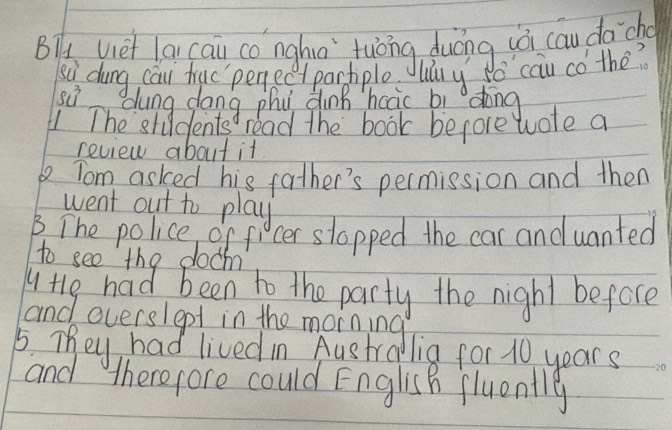 BT1 viết lại câu có nghĩa tương đương với câu đã cho
sử dụng cấu trúc perfect partiple. Lưu ý số câu có thể
sử dụng dạng phủ định hoặc bị động
1 The students read the book before wote a
review about it
2 Tom asked his father's permission and then
went out to play
3 The police officer stopped the car and wanted
to see the docm
4 He had been to the party the night before
and overslept in the morning
5. They had lived in Australia for 10 years
and therefore could English fluently